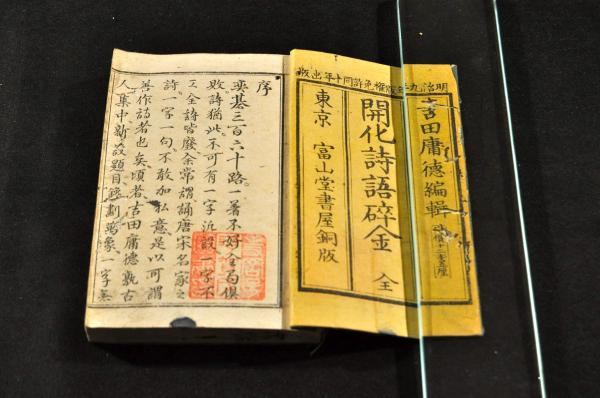 明治九年版權免許同十年出版
吉田庸德編輯
開化詩語碎金 全
東京 富山堂書屋銅版
序
奕碁三百六十路一著不好全局俱
敗詩猶此不可有一字 設一字不
工全詩皆廢余常謂誦唐宋名家之
詩一字一句不敢加私意是以可謂
善作詩者也矣頃者吉田庸德 古
人集中新 題目 劃萬象一字無